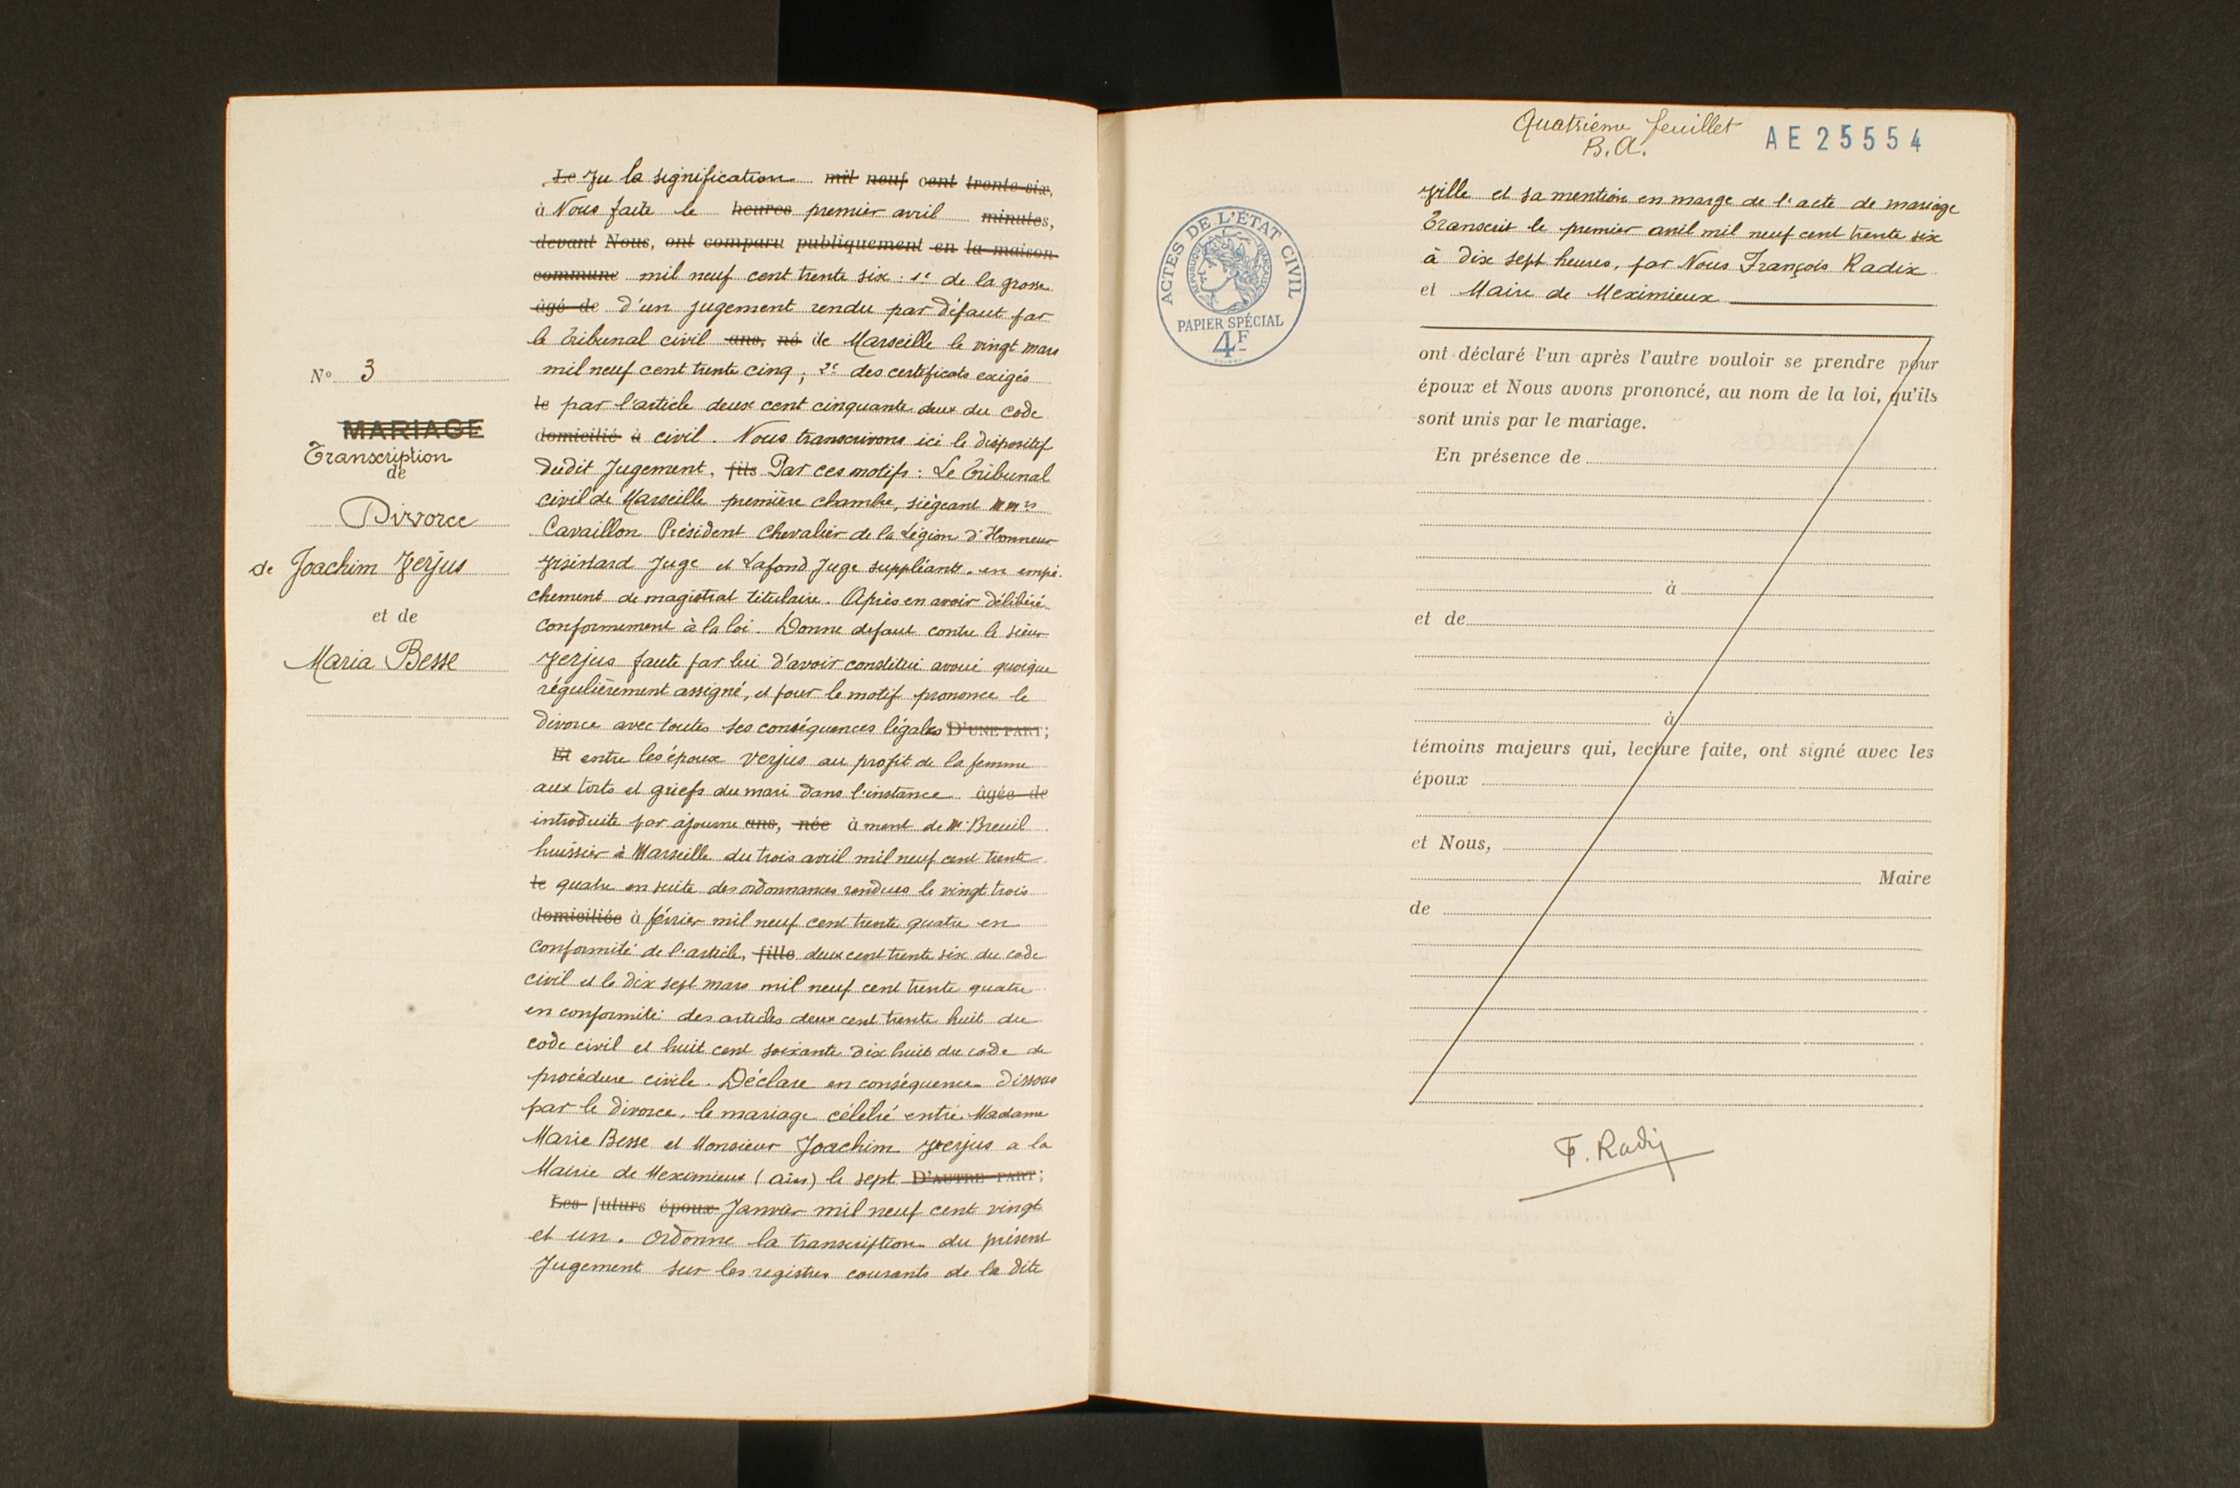 N° 3
MARIAGE
Transcription
de
Divorce
de Joachim Verjus
et de
Maria Besse
Le Vu la signification mil neuf cent trente-six,
à Nous faite le heures premier avril minutes,
devant Nous, ont comparu publiquement en la maison
commune mil neuf cent trente six : 1º de la grosse
âgé de d'un jugement rendu par défaut par
le Tribunal civil ans, né de Marseille le vingt mars
mil neuf cent trente cinq ; 2º des certificats exigés
le par l'article deux cent cinquante deux du code
domicilié à civil. Nous transcrivons ici le dispositif
dudit Jugement, fils Par ces motifs : Le Tribunal
civil de Marseille première chambre, siégeant MMrs
Cavaillon Président Chevalier de la Légion d'Honneur
Juge et Lafond Juge suppléant. en empê-
chement de magistrat titulaire. Après en avoir délibéré
conformément à la loi. Donne defaut contre le sieur
Verjus faute par lui d'avoir constitué avoué quoique
régulièrement assigné, et pour le motif prononce le
divorce avec toutes ses conséquences légales D'UNE PART ;
Et entre les époux Verjus au profit de la femme
aux torts et griefs du mari dans l'instance âgée de
introduite par ajourne ans, née à ment de Me Breuil
huissier à Marseille du trois avril mil neuf cent trente
le quatre en suite des ordonnances rendues le vingt trois
domiciliée à février mil neuf cent trente quatre en
conformité de l'article, fille deux cent trente six du code
civil et le dix sept mars mil neuf cent trente quatre
en conformité des articles deux cent trente huit du
code civil et huit cent soixante dix huit du code de
procédure civile. Déclare en conséquence dissous
par le divorce, le mariage célébré entre Madame
Marie Besse et Monsieur Joachim Verjus a la
Mairie de Meximieux (ain) le sept D'AUTRE PART ;
Les futurs époux Janvier mil neuf cent vingt
et un. Ordonne la transcription du présent
Jugement sur les registres courants de la dite
Quatrième feuillet
B.A.
AE 25554
ACTES DE L'ÉTAT CIVIL
RÉPUBLIQUE FRANÇAISE
PAPIER SPÉCIAL
4F
ville et sa mention en marge de l'acte de mariage
Transcrit le premier avril mil neuf cent trente six
à dix sept heures, par Nous François Radix
et Maire de Meximieux
ont déclaré l'un après l'autre vouloir se prendre pour
époux et Nous avons prononcé, au nom de la loi, qu'ils
sont unis par le mariage.
En présence de
à
et de
à
témoins majeurs qui, lecture faite, ont signé avec les
époux
et Nous,
Maire
de
F. Radix